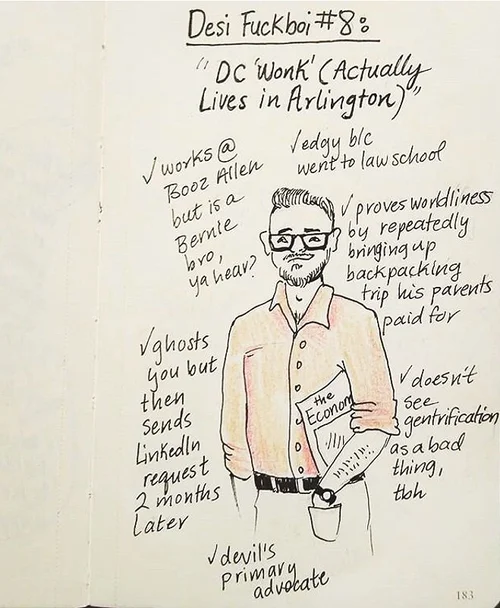 Desi Fuckboi #8:
"DC 'Wonk' (Actually
Lives in Arlington)"
✓works @
Booz Allen
but is a
Bernie
bro,
ya hear?
✓edgy b/c
went to law school
✓proves worldliness
by repeatedly
bringing up
backpacking
trip his parents
paid for
✓ghosts
you but
then
sends
LinkedIn
request
2 months
later
the
Econom
✓doesn't
see
gentrification
as a bad
thing,
tbh
✓devil's
primary
advocate
183